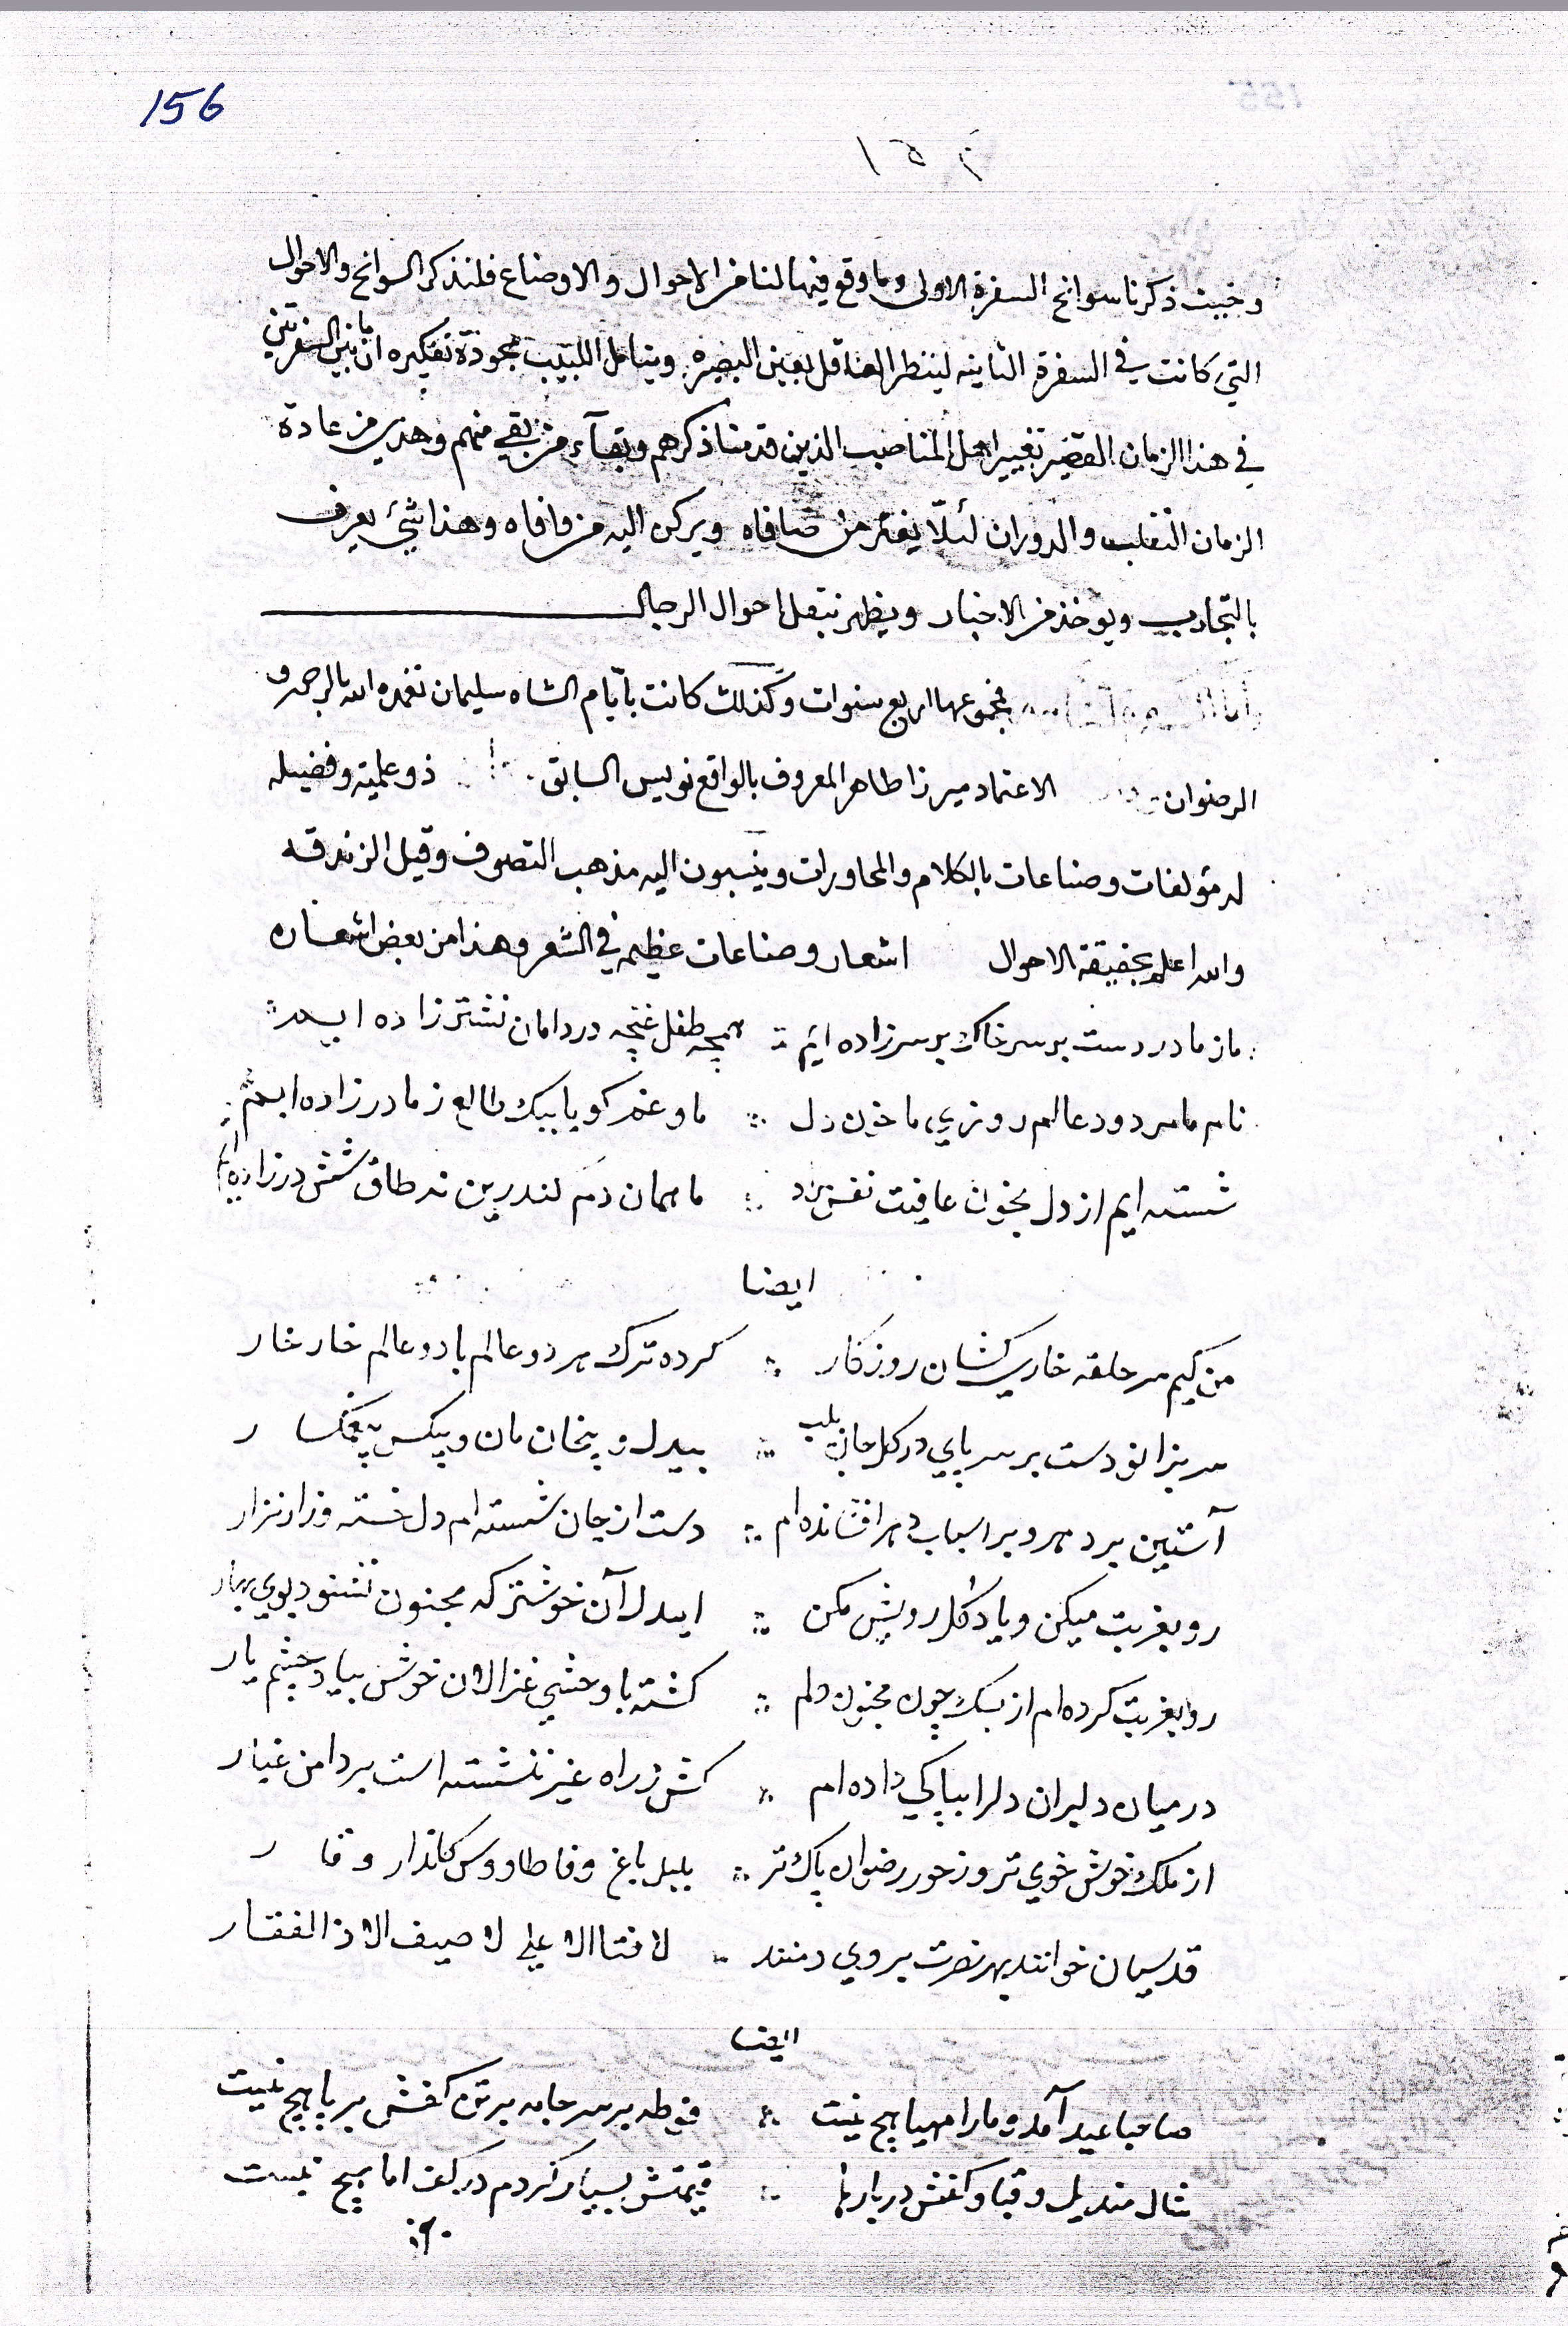 156
١٥٢
وحيث ذكرنا سوانح السفرة الاولى وما وقع فيها لنا من الاحوال والاوضاع فلنذكر السوانح والاحوال
التي كانت في السفرة الثانيه لينظر العاقل بعين البصيره ويتامل اللبيب بجودة تفكيره ان ما بين السفرتين
في هذا الزمان القصير تغيير اهل المناصب الذين قدمنا ذكرهم وبقآء من بقي منهم وهذي من عادة
الزمان التقلب والدوران لئلّا يغتر من صافاه ويركن اليه من وافاه وهذا شئ يعرف
بالتجاريب ويوخذ من الاخبار ويظهر بتقل احوال الرجال
فمجموعها اربع سنوات وكذلك كانت بايّام الشاه سليمان تغمده الله بالرحمه و
الرضوان الاعتماد ميرزا طاهر المعروف بالواقع نويس السابق ذو علميّة وفضيله
له مؤلفات وصناعات بالكلام والمحاورات وينسبون اليه مذهب التصوف وقيل الزندقه
والله اعلم بحقيقة الاحوال اشعار وصناعات عظيمه في الشعر وهذا من بعض اشعاره
ما ز مادر دست بر سر خاك بر سر زاده ايم همچه طفل غنچه در دامان نشتر زاده ايم
نام ما مردود عالم روزي ما خون دل ما و غم كويا بيك طالع ز مادر زاده ايم
شسته ايم از دل بخون عافيت نفش مراد ما همان دم كندرين نه طاق ششدر زاده ايم
ايضا
من كيم سر حلقه خاري كشان روزكار كرده ترك هر دو عالم با دو عالم خار خار
سر بزانو دست بر سر پاي در كل جان بلب بيدل و بيخان مان و بيكس بيغمكسار
آستين بر دهر و بر اسباب دهر افشانده ام دست از جان شسته ام دل خسته و زار نزار
رو بغربت ميكن و ياد كل رويش مكن ايدل آن خوشتر كه مجنون نشنود بوي بهار
رو بغربت كرده ام از بسك چون مجنون دلم كشته با وحشي غزالان خوش بياد چشم يار
در ميان دلبران دلرا بپاكي داده ام كش ز راه غير ننشسته است بر دامن غبار
از ملك خوش خوي تر وز حور رضوان پاك تر بلبل باغ وفا طاووس كلذار وقار
قدسيان خوانند بهر نصرت بر وي دمند لا فتا الا علي لا صيف الا ذالفقار
ايضا
صاحبا عيد آمد و ما را مهيا هيچ نيست فوطه بر سر جامه بر تن كفش بر پا هيچ نيست
شال منديل و قبا و كفش در بازارها قيمتش بسيار كردم در كف اما هيچ نيست